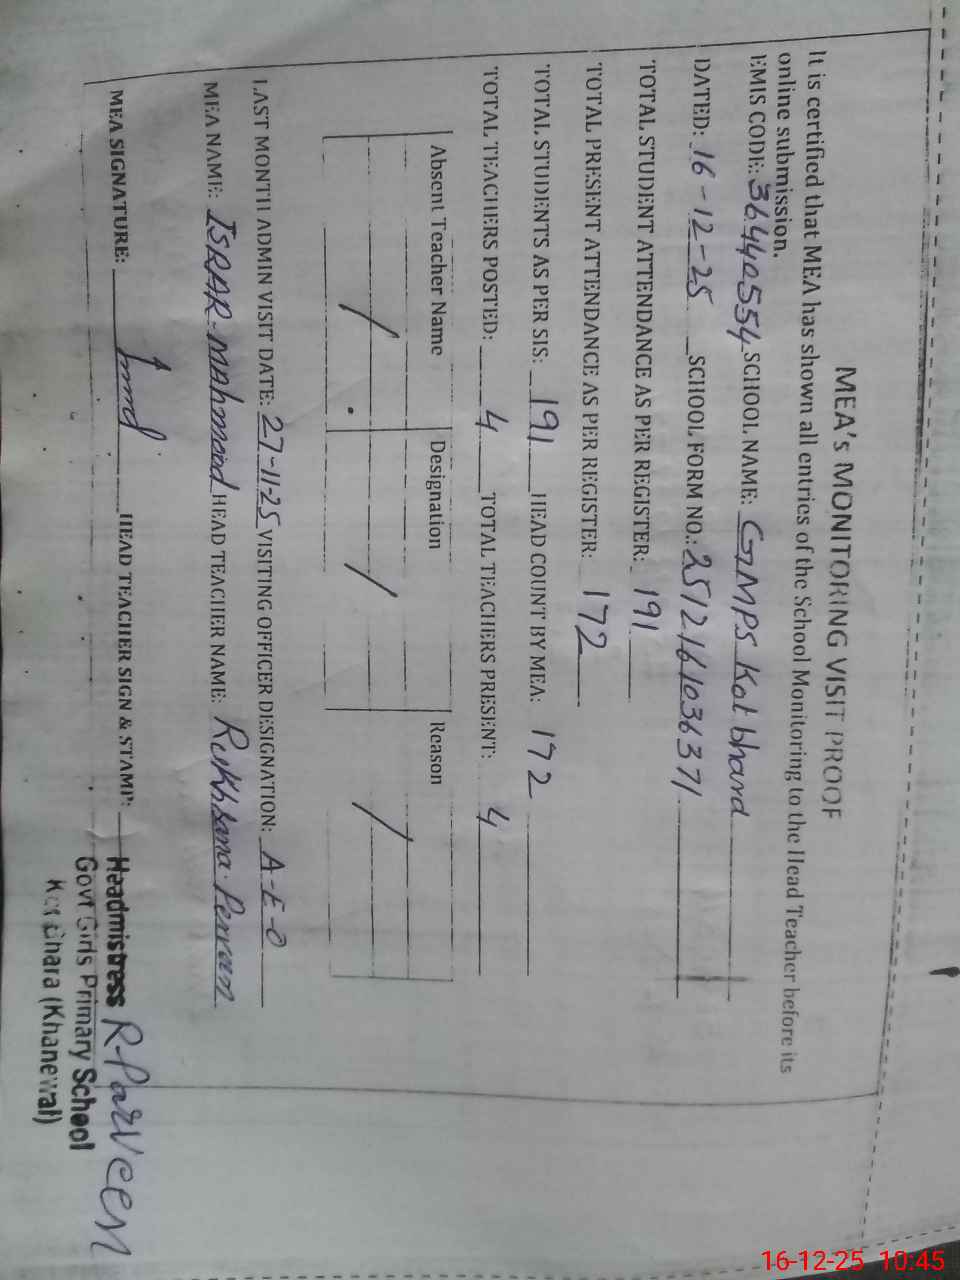 MEA's MONITORING VISIT PROOF
It is certified that MEA has shown all entries of the School Monitoring to the Head Teacher before its
online submission.
EMIS CODE: 36440554 SCHOOL NAME: GMPS Kot bhard
DATED: 16-12-25 SCHOOL FORM NO.: 2512161036371
TOTAL STUDENT ATTENDANCE AS PER REGISTER: 191
TOTAL PRESENT ATTENDANCE AS PER REGISTER: 172
TOTAL STUDENTS AS PER SIS: 191 HEAD COUNT BY MEA: 172
TOTAL TEACHERS POSTED: 4 TOTAL TEACHERS PRESENT: 4
Absent Teacher Name Designation Reason
/ / /
LAST MONTH ADMIN VISIT DATE: 27-11-25 VISITING OFFICER DESIGNATION: A-E-O
MEA NAME: ISRAR-Mahmood HEAD TEACHER NAME: Rukhsana Perveen
MEA SIGNATURE: HEAD TEACHER SIGN & STAMP: R-Parveen
Headmistress
Govt Girls Primary School
(Khanewal)
16-12-25 10:45